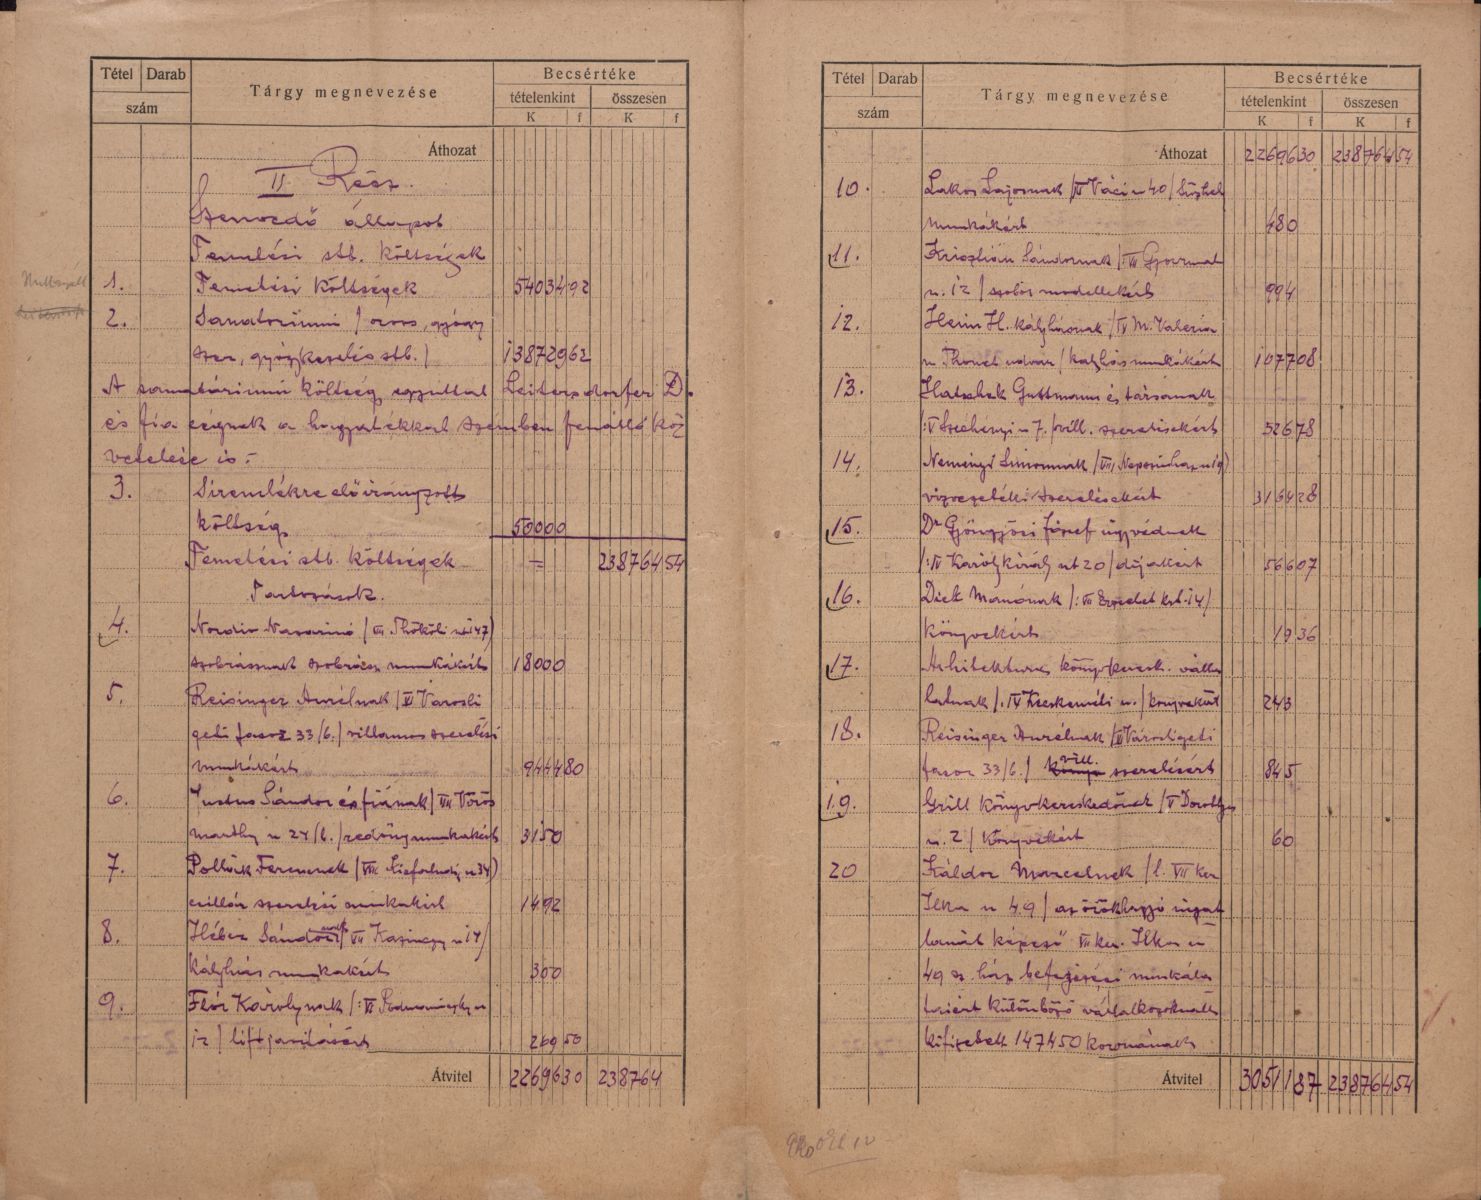 Tétel Darab
szám
Tárgy megnevezése
Becsértéke
tételenkint összesen
K f K f
Áthozat
II. Rész.
Szenvedő állapot
Temetési stb. költségek
1. Temetési költségek 54034 92
2. Sanatoriumi / orvos, gyógy
szer, gyógykezelés stb. / 138729 62
A sanatóriumi költség egyuttal Leitersdorfer D.
és fia cégnek a hagyatékkal szemben fenálló kö
vetelése is.-
3. Siremlékre előirányzott
költség 50000
Temetési stb. költségek = 238764 54
Tartozások.
4. Nordio Nazarinó / VII Thököli u 147)
szobrásznak szobrász munkákért 18000
5. Reisinger Aurélnak / VI Városli
geti fasor 33/b. / villamos szerelési
munkákért 9444 80
6. Justus Sándor és fiának / VII Vörös
marthy u 27/b. / redőny munkákért 3150
7. Pollák Ferencnek / VIII u 34)
csillár szerelési munkákért 1492
8. Héber Sándor / VII Kazinczy u 14/
Kályhás munkákért 300
9. Flór Károlynak /: VI Podmaniczky u
12 / lift javitásért 269 50
Átvitel 22696 30 238764
Tétel Darab
szám
Tárgy megnevezése
Becsértéke
tételenkint összesen
K f K f
Áthozat 22696 30 238764 54
10. Lakos Lajosnak / Váci u 40/
munkákért 480
11. Krisztián Sándornak /: VII Gyarmat
u. 12 / szobor modellekért 994
12. Heim H. kályhásnak / IV M. Valéria
u Thonet udvar / kályhás munkákért 1077 08
13. Hatschek Guttmann és társainak
/: V Széchényi u 7. / vill. szerelésekért 526 78
14. Neményi Simonnak / VIII Nepszinház u 19)
vizvezetéki szerelésekért 3164 28
15. Dr Gyöngyösi József ügyvédnek
/: IV Károly király ut 20 / dijakért 566 07
16. Dick Manónak /: VII Erzsébet krt. 14/
könyvekért 19 36
17. Arhitektura könyvkeresk. válla
latnak /. IV Kecskeméti u. / könyvekért 243
18. Reisinger Aurélnak / VI Városligeti
fasor 33/b. / vill. szerelésért 845
19. Grill könyvkereskedőnek / V Dorottya
u. 2 / könyvekért 60
20 Káldor Marcelnek / l. VII ker
Ilka u 49 / az örökhagyó ingat
lanát képező VII ker. Ilka u
49 sz. ház befejezési munkála
taiért különböző vállalkozóknak
kifizetett 147450 koronának
Átvitel 30511 87 238764 54